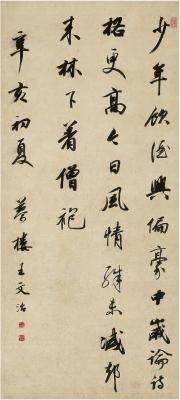 少年飲酒興偏豪中歲論詩
格更高今日風情殊未減却
来林下著僧袍
辛亥初夏
夢樓王文治